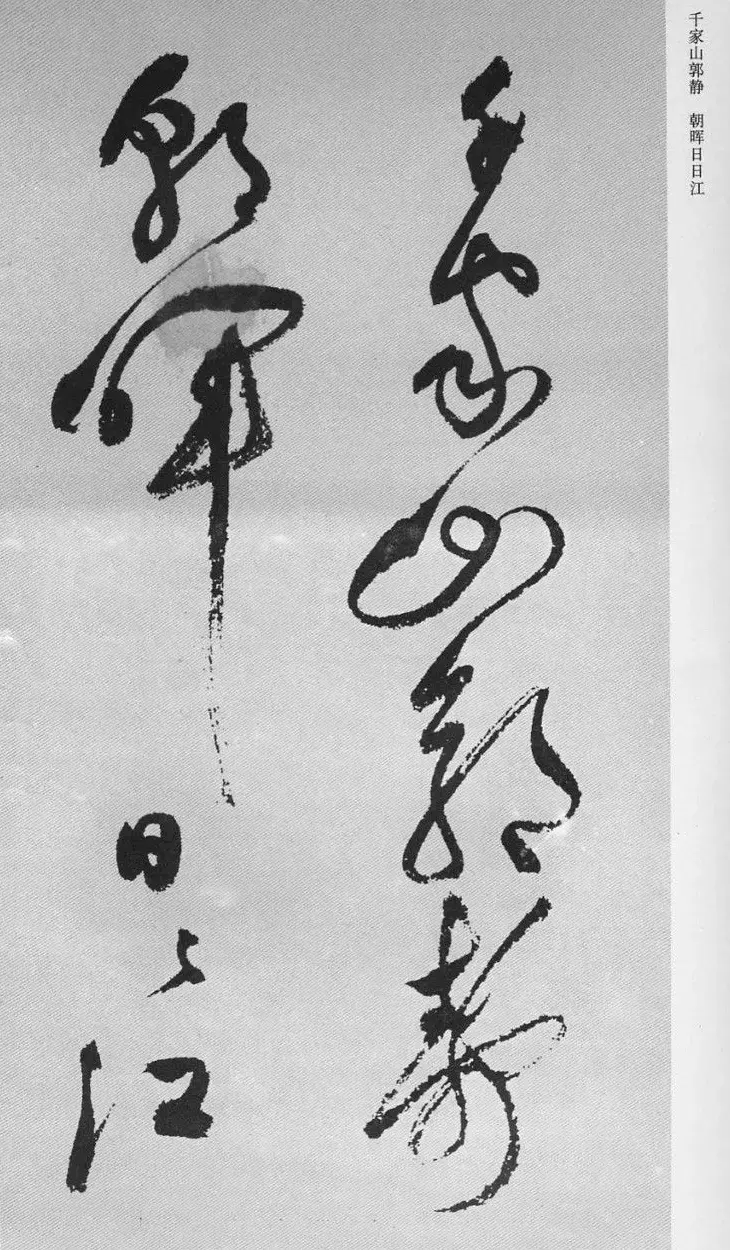 千家山郭静　朝晖日日江
千家山郭静
朝晖日々江